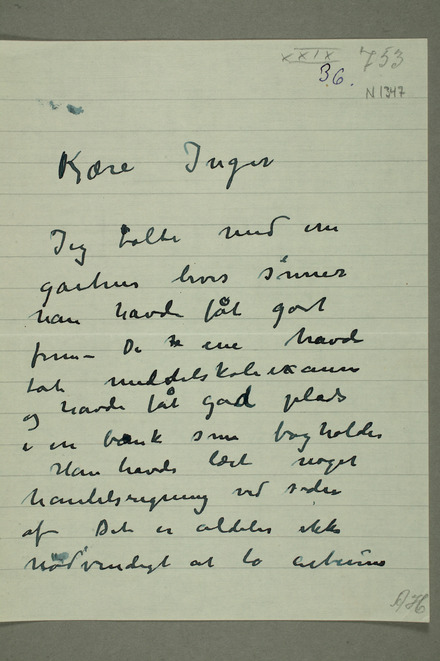 XXIX 753
36.
N 1347
Kjære Inger
Jeg talte med en
gartner hvis sønner
han havde fåt godt
frem – De ene havde
tat middelskoleexamen
og havde fåt god plads
i en bank som bogholder
Han havde lært noget
handelsregning ved siden
af Det er aldeles ikke
nødvendigt at ta artium